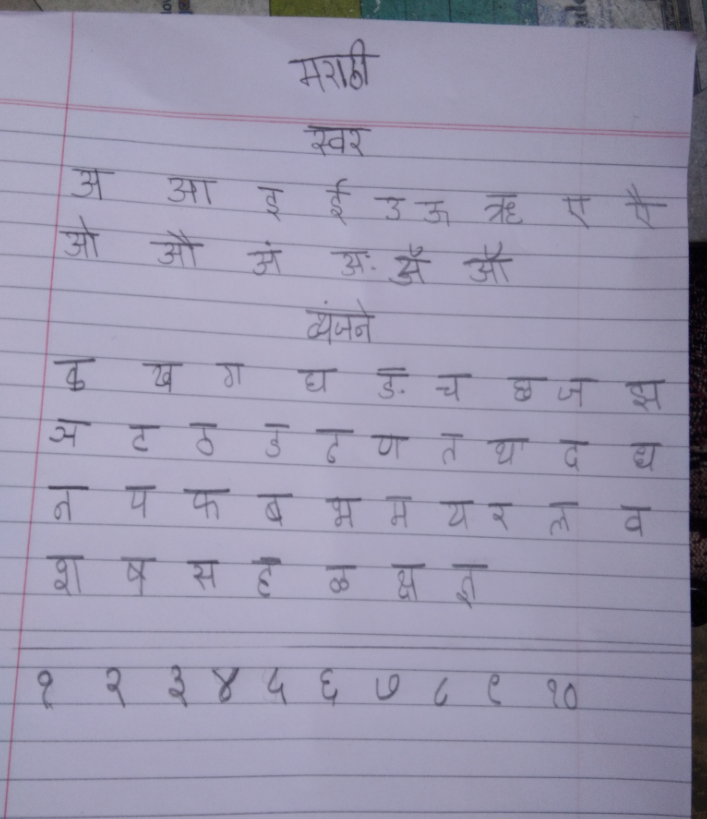 मराठी
स्वर
अ आ इ ई उ ऊ ऋ ए ऐ
ओ औ अं अः अॅ ऑ
व्यंजने
क ख ग घ ङ च छ ज झ
ञ ट ठ ड ढ ण त थ द ध
न प फ ब भ म य र ल व
श ष स ह ळ क्ष ज्ञ
१ २ ३ ४ ५ ६ ७ ८ ९ १०